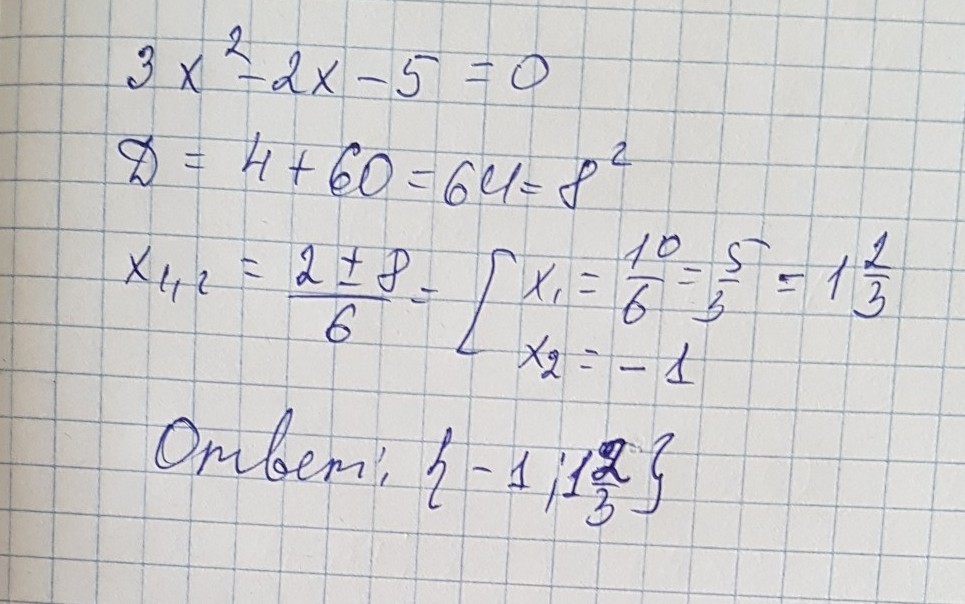 3x² - 2x - 5 = 0
D = 4 + 60 = 64 = 8²
x₁,₂ = (2 ± 8)/6 = [ x₁ = 10/6 = 5/3 = 1 2/3
x₂ = - 1
Ответ: {- 1; 1 2/3}